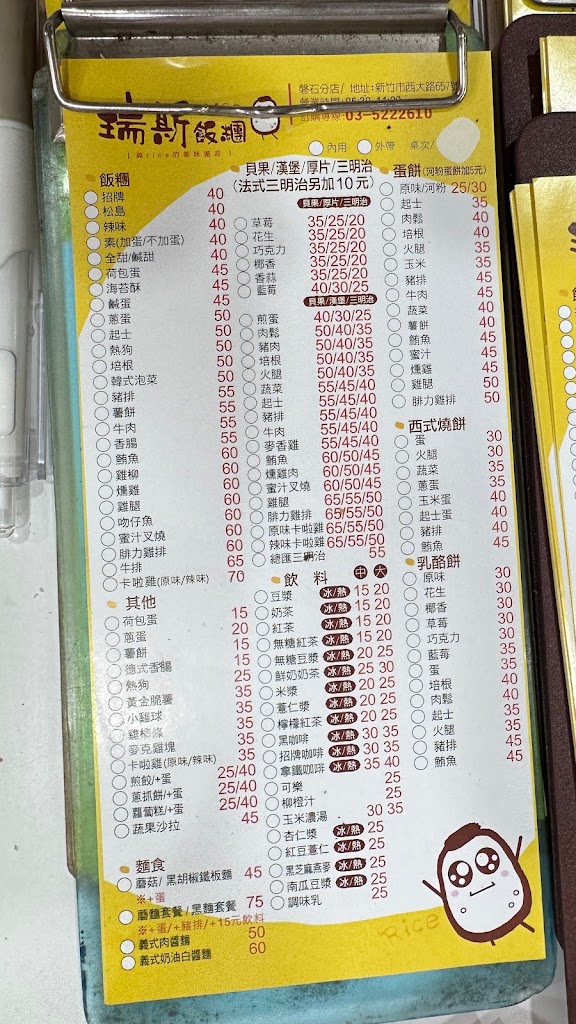 瑞斯飯糰
|與rice的美味邂逅|
磐石分店/ 地址:新竹市西大路657號
訂購專線:03-5222610
內用 外帶 桌次/
飯糰
招牌 40
松島 40
辣味 40
素(加蛋/不加蛋) 40
全甜/鹹甜 40
荷包蛋 45
海苔酥 45
鹹蛋 45
蔥蛋 50
起士 50
熱狗 50
培根 50
韓式泡菜 50
豬排 55
薯餅 55
牛肉 55
香腸 55
鮪魚 60
雞柳 60
燻雞 60
雞腿 60
吻仔魚 60
蜜汁叉燒 60
腓力雞排 60
牛排 65
卡啦雞(原味/辣味) 70
其他
荷包蛋 15
蔥蛋 20
薯餅 15
德式香腸 25
熱狗 35
黃金脆薯 35
小雞球 35
雞柳條 35
麥克雞塊 35
卡啦雞(原味/辣味) 35
煎餃/+蛋 25/40
蔥抓餅/+蛋 25/40
蘿蔔糕/+蛋 25/40
蔬果沙拉 45
麵食
蘑菇/黑胡椒鐵板麵 45
※+蛋
蘑麵套餐/黑麵套餐 75
※+蛋/+豬排/+15元飲料
義式肉醬麵 50
義式奶油白醬麵 60
貝果/漢堡/厚片/三明治
(法式三明治另加10元)
貝果/厚片/三明治
草莓 35/25/20
花生 35/25/20
巧克力 35/25/20
椰香 35/25/20
香蒜 35/25/20
藍莓 40/30/25
貝果/漢堡/三明治
煎蛋 40/30/25
肉鬆 50/40/35
豬肉 50/40/35
培根 50/40/35
火腿 50/40/35
蔬菜 55/45/40
起士 55/45/40
豬排 55/45/40
牛肉 55/45/40
麥香雞 55/45/40
鮪魚 60/50/45
燻雞肉 60/50/45
蜜汁叉燒 60/50/45
雞腿 65/55/50
腓力雞排 65/55/50
原味卡啦雞 65/55/50
辣味卡啦雞 65/55/50
總匯三明治 55
飲料 中 大
豆漿 冰/熱 15 20
奶茶 冰/熱 15 20
紅茶 冰/熱 15 20
無糖紅茶 冰/熱 15 20
無糖豆漿 冰/熱 15 20
鮮奶奶茶 冰/熱 25 30
米漿 冰/熱 20 25
薏仁漿 冰/熱 20 25
檸檬紅茶 冰/熱 20 25
黑咖啡 冰/熱 30 35
招牌咖啡 冰/熱 30 35
拿鐵咖啡 冰/熱 35 40
可樂 25
柳橙汁 25
玉米濃湯 30 35
杏仁漿 冰/熱 25
紅豆薏仁 冰/熱 25
黑芝麻燕麥 冰/熱 25
南瓜豆漿 冰/熱 25
調味乳 25
蛋餅 (河粉蛋餅加5元)
原味/河粉 25/30
起士 35
肉鬆 40
培根 40
火腿 35
玉米 35
豬排 45
牛肉 45
蔬菜 40
薯餅 40
鮪魚 45
蜜汁 45
燻雞 45
雞腿 50
腓力雞排 50
西式燒餅
蛋 30
火腿 30
蔬菜 35
蔥蛋 35
玉米蛋 40
起士蛋 40
豬排 40
鮪魚 45
乳酪餅
原味 30
花生 30
椰香 30
草莓 30
巧克力 30
藍莓 35
蛋 35
培根 40
肉鬆 40
起士 35
火腿 35
豬排 45
鮪魚 45
Rice